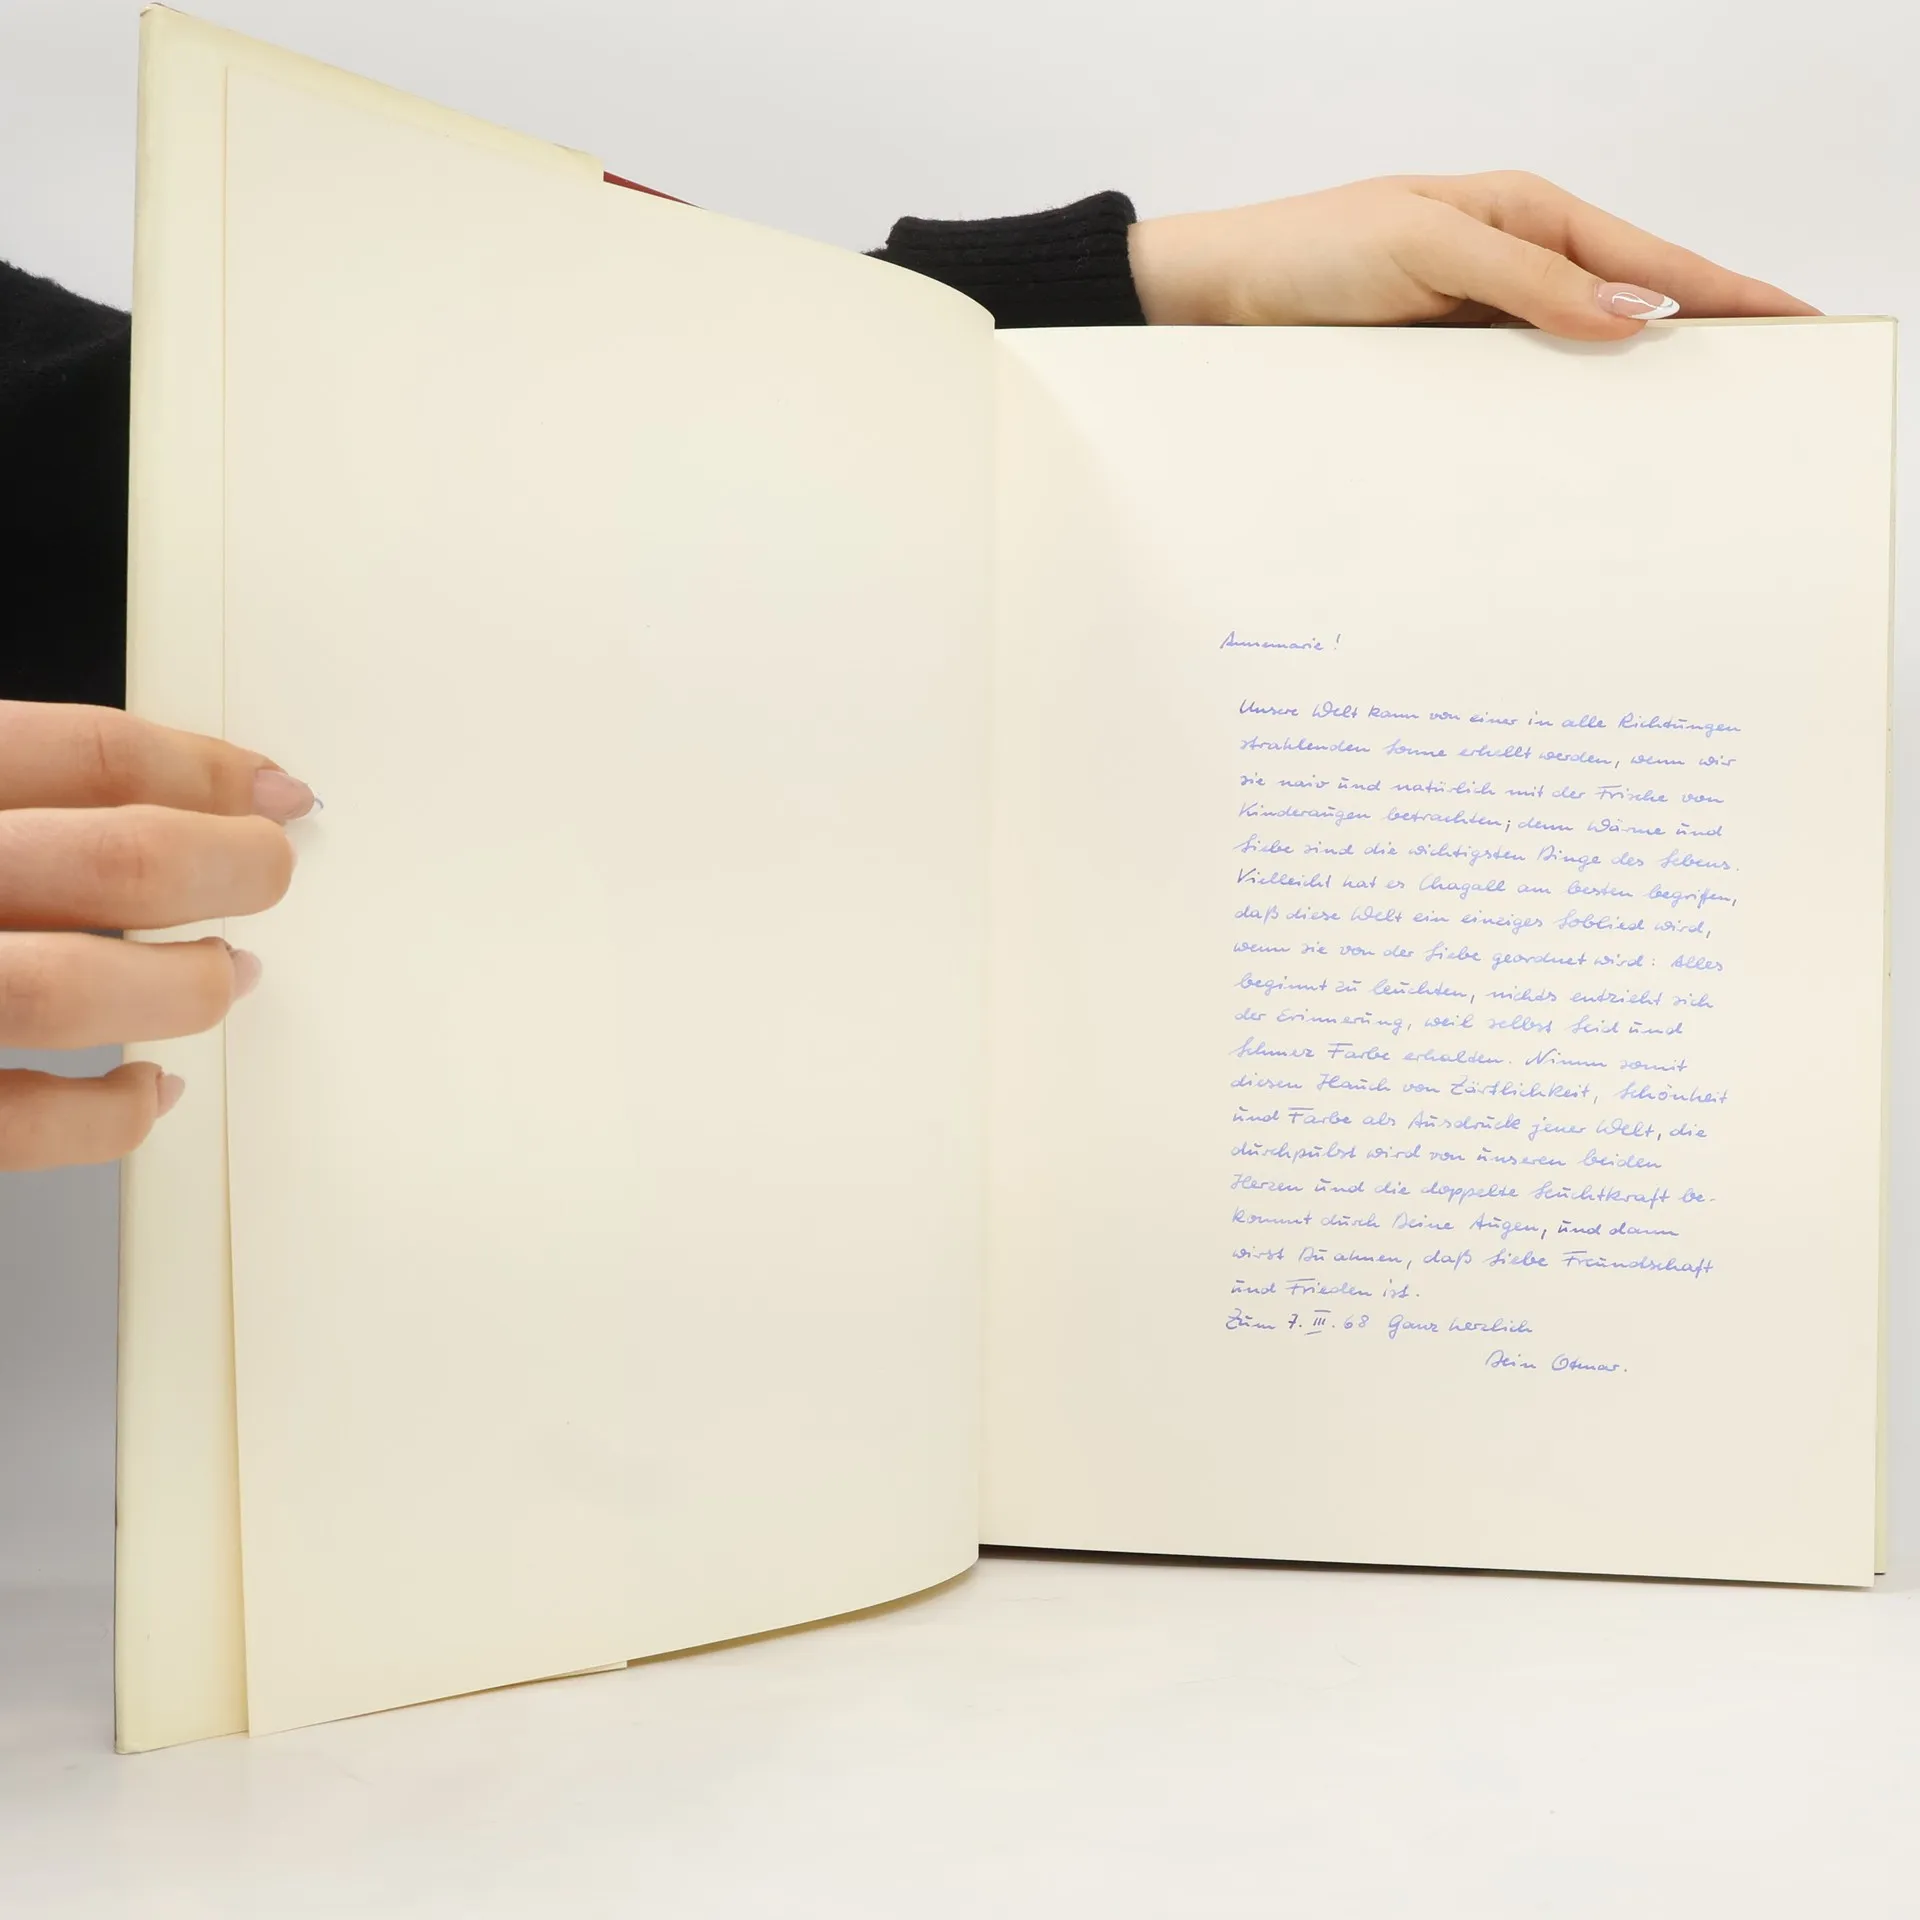 Annemarie!
Unsere Welt kann von einer in alle Richtungen
strahlenden Sonne erhellt werden, wenn wir
sie naiv und natürlich mit der Frische von
Kinderaugen betrachten; denn Wärme und
Liebe sind die wichtigsten Dinge des Lebens.
Vielleicht hat es Chagall am besten begriffen,
daß diese Welt ein einziges Loblied wird,
wenn sie von der Liebe geordnet wird: Alles
beginnt zu leuchten, nichts entzieht sich
der Erinnerung, weil selbst Leid und
Schmerz Farbe erhalten. Nimm somit
diesen Hauch von Zärtlichkeit, Schönheit
und Farbe als Ausdruck jener Welt, die
durchpulst wird von unseren beiden
Herzen und die doppelte Leuchtkraft be-
kommt durch Deine Augen, und dann
wirst Du ahnen, daß Liebe Freundschaft
und Frieden ist.
Zum 7. III. 68 Ganz herzlich
Dein Otmar.